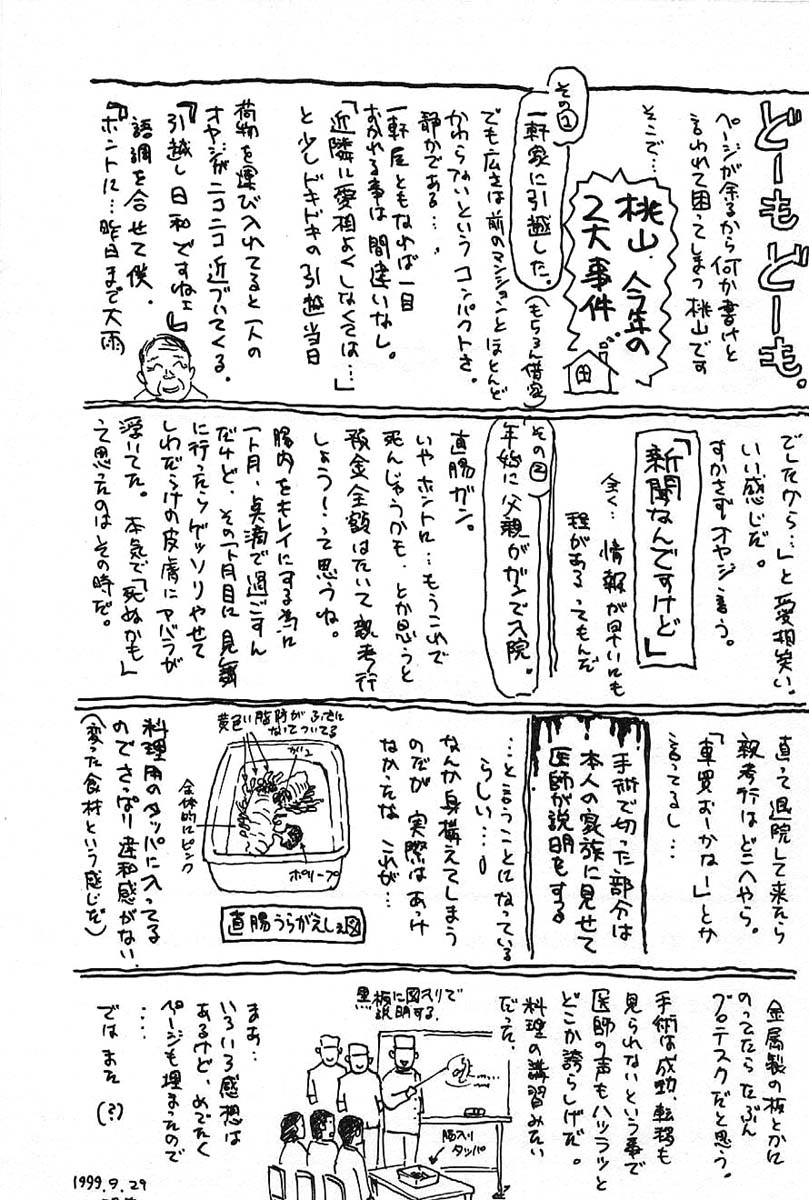 どーもどーも。
ページが余るから何か書けと
言われて困ってしまう桃山です
そこで…
桃山、今年の
2大事件
その1
一軒家に引越した。
(もちろん借家)
でも広さは前のマンションとほとんど
かわらないというコンパクトさ。
静かである…。
一軒屋ともなれば一目
おかれる事は間違いなし。
「近隣に愛相よくしなくては…」
と少しドキドキの引越当日
荷物を運び入れてると一人の
オヤジがニコニコ近づいてくる。
『引越し日和ですねェ』
語調を合せて僕、
『ホントに…昨日まで大雨
でしたから…』と愛想笑い。
いい感じだ。
すかさずオヤジ言う。
「新聞なんですけど」
全く…情報が早いにも
程があるってもんだ
その2
年始に父親がガンで入院。
直腸ガン。
いやホントに…もうこれで
死んじゃうかも、とか思うと
預金全額はたいて親考行
しょう!って思うね。
腸内をキレイにする為に
一ト月、点滴で過ごすん
だけど、その一ト月目に見舞
に行ったらゲッソリやせて
しわだらけの皮膚にアバラが
浮いてた。本気で「死ぬかも」
って思ったのはその時だ。
直って退院して来たら
親考行はどこへやら。
「車買おーかなー」とか
言ってるし…
手術で切った部分は
本人の家族に見せて
医師が説明をする
…と言うことになっている
らしい…。
なんか身構えてしまう
のだが実際はあっけ
なかったな これが…
黄色い脂肪がふさに
なってついてる
ガン
全体的にピンク
ポリープ
直腸うらがえしの図
料理用のタッパに入ってる
のでさっぱり違和感がない
(変った食材という感じだ)
金属製の板とかに
のってたらたぶん
グロテスクだと思う。
手術は成功、転移も
見られないという事で
医師の声もハツラツと
どこか誇らしげだ。
料理の講習みたい
だった。
黒板に図入りで
説明する。
腸入り
タッパ
まぁ…
いろいろ感想は
あるけど、めでたく
ページも埋まったので
…
では また (?)
1999.9.29